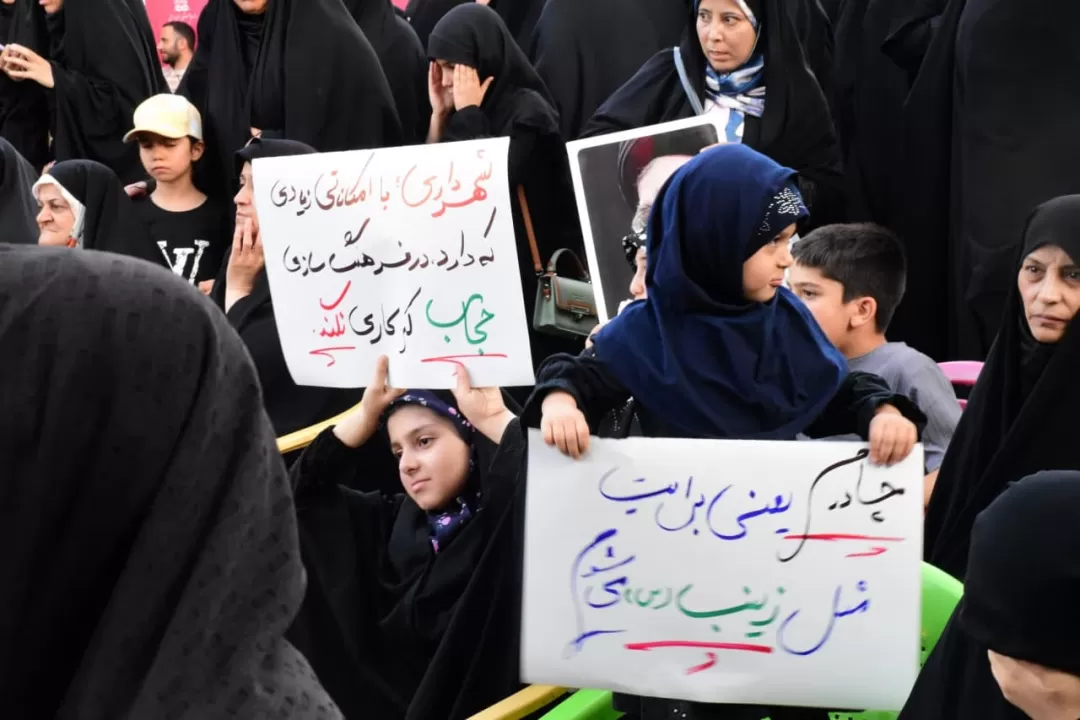 شهرداری؛ با امکاناتی زیادی
که دارد، در فرهنگ سازی
حجاب کم کاری نکند.
چادرم یعنی برایت
مثل زینب (س) می شوم